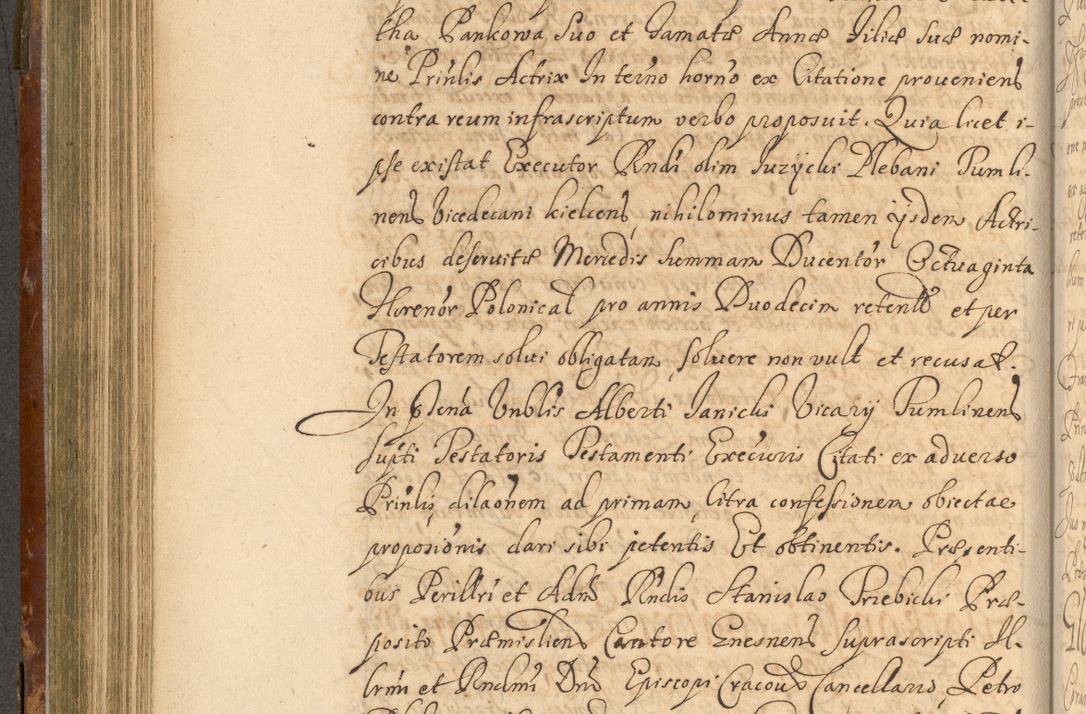 tha Pankowa suo et Famatæ Annæ Filiæ suæ nomi-
ne Prinlis Actrix In teino horno ex Citatione proueniens
contra reum infrascriptum verbo proposuit. Quia licet i-
pse existat Executor Rndi olim Jurzycki Plebani Tumli-
nens Vicedecani kielcens, nihilominus tamen ijsdem Actri-
cibus deseruitæ Mercedis summam Ducentor Octuaginta
Florenor Polonical pro annis Duodecim retent et per
Testatorem solui obligatam, soluere non vult et recusat.
In Pntia Vnblis Alberti Janicki, Vicarij Tumlinens
supti Testatoris Testamenti Execuris Citati ex aduerso
Prinlis, dilaonem ad primam, Citra confessionem obiectae
proposionis dari sibi petentis Et obtinentis. Præsenti-
bus Perillri et Adm Rndis Stanislao Trzebicki Præ-
posito Præmisliens Cantore Gnesnens suprascripti Il-
lrmi et Rndmi Dni Episcopi Cracou Cancellario, Petro